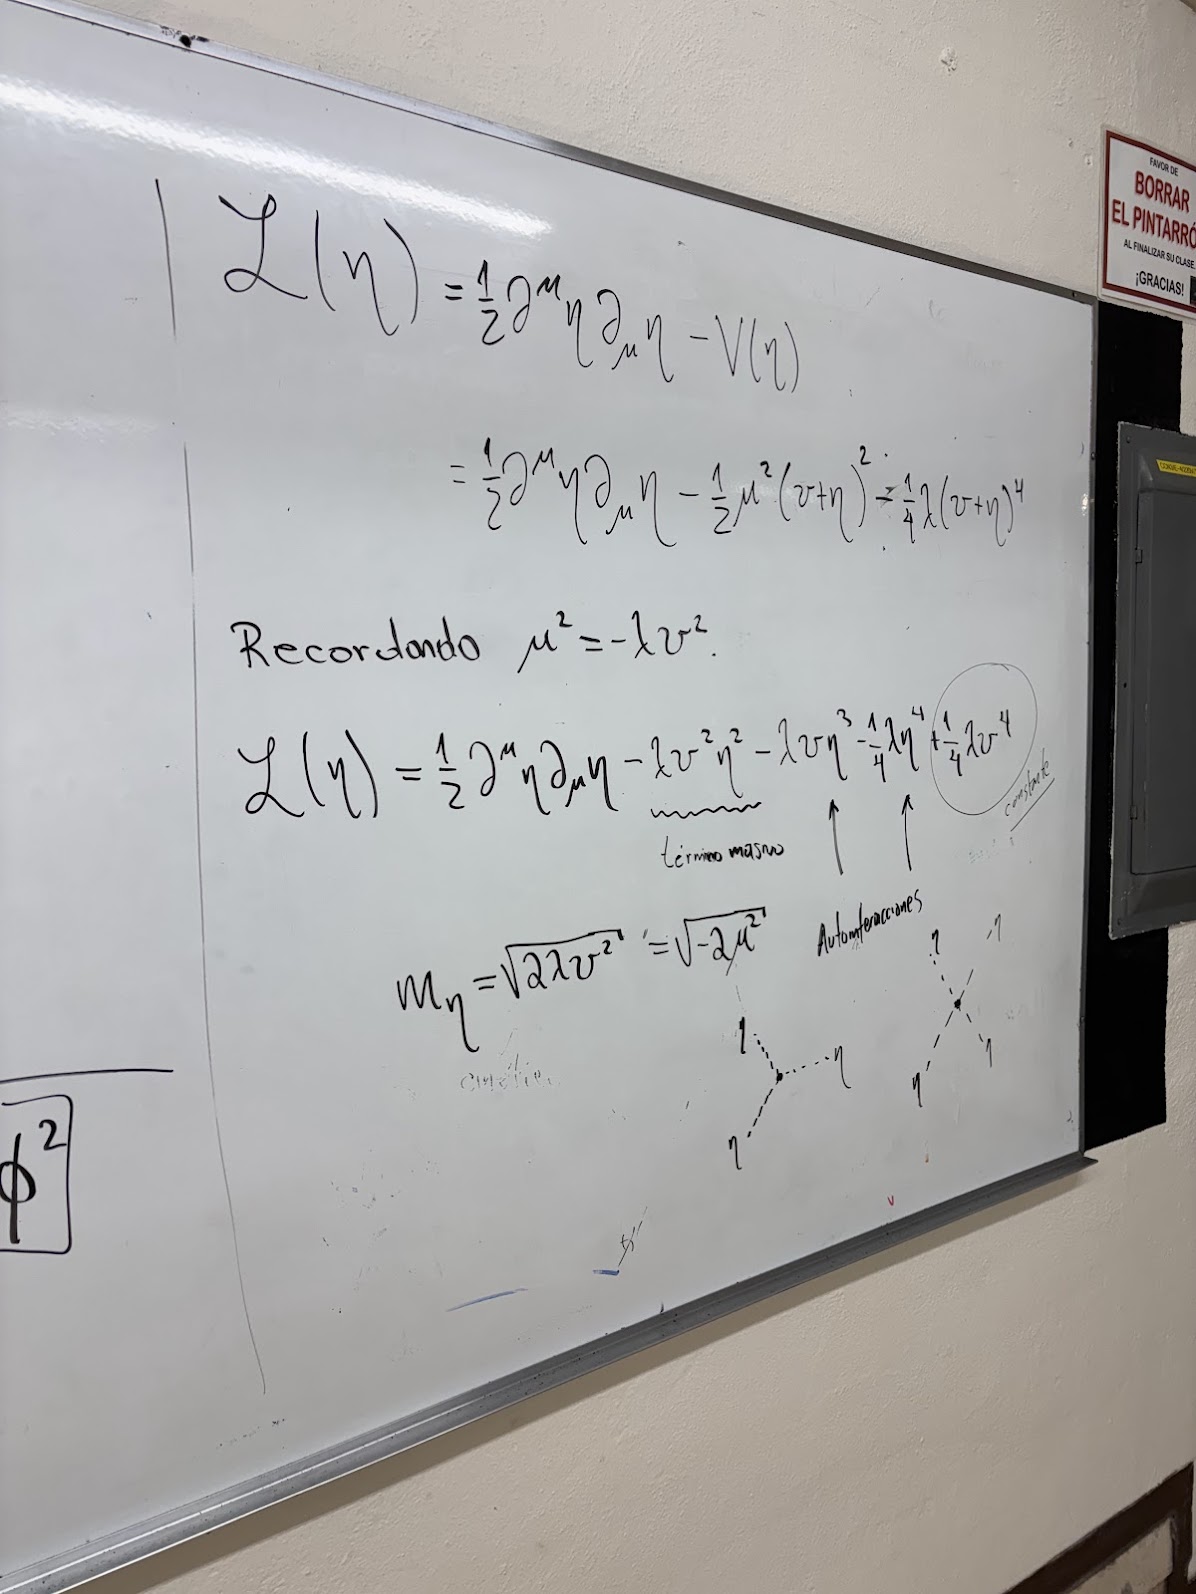 FAVOR DE
BORRAR
EL PINTARRÓ
AL FINALIZAR SU CLASE
¡GRACIAS!
ℒ(η) = ½ ∂^μ η ∂_μ η − V(η)
= ½ ∂^μ η ∂_μ η − ½ μ² (v+η)² − ¼ λ (v+η)⁴
Recordando μ² = −λv².
ℒ(η) = ½ ∂^μ η ∂_μ η − λv²η² − λvη³ − ¼ λη⁴ + ¼ λv⁴
constante
término masivo
Autointeracciones
m_η = √(2λv²) = √(−2μ²)
η η η
η η η η
ϕ²